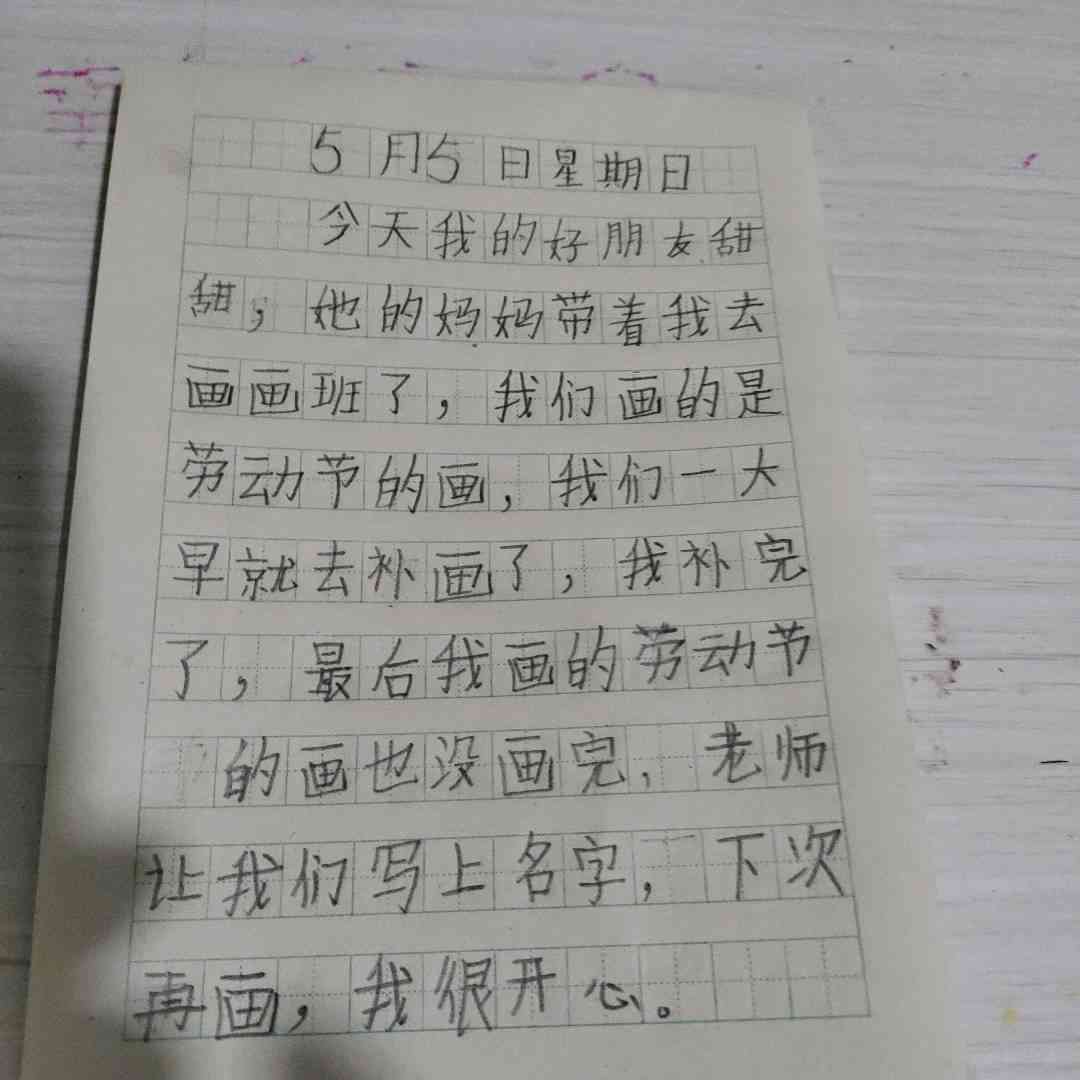 5月5日星期日
今天我的好朋友甜
甜，她的妈妈带着我去
画画班了，我们画的是
劳动节的画，我们一大
早就去补画了，我补完
了，最后我画的劳动节
的画也没画完，老师
让我们写上名字，下次
再画，我很开心。